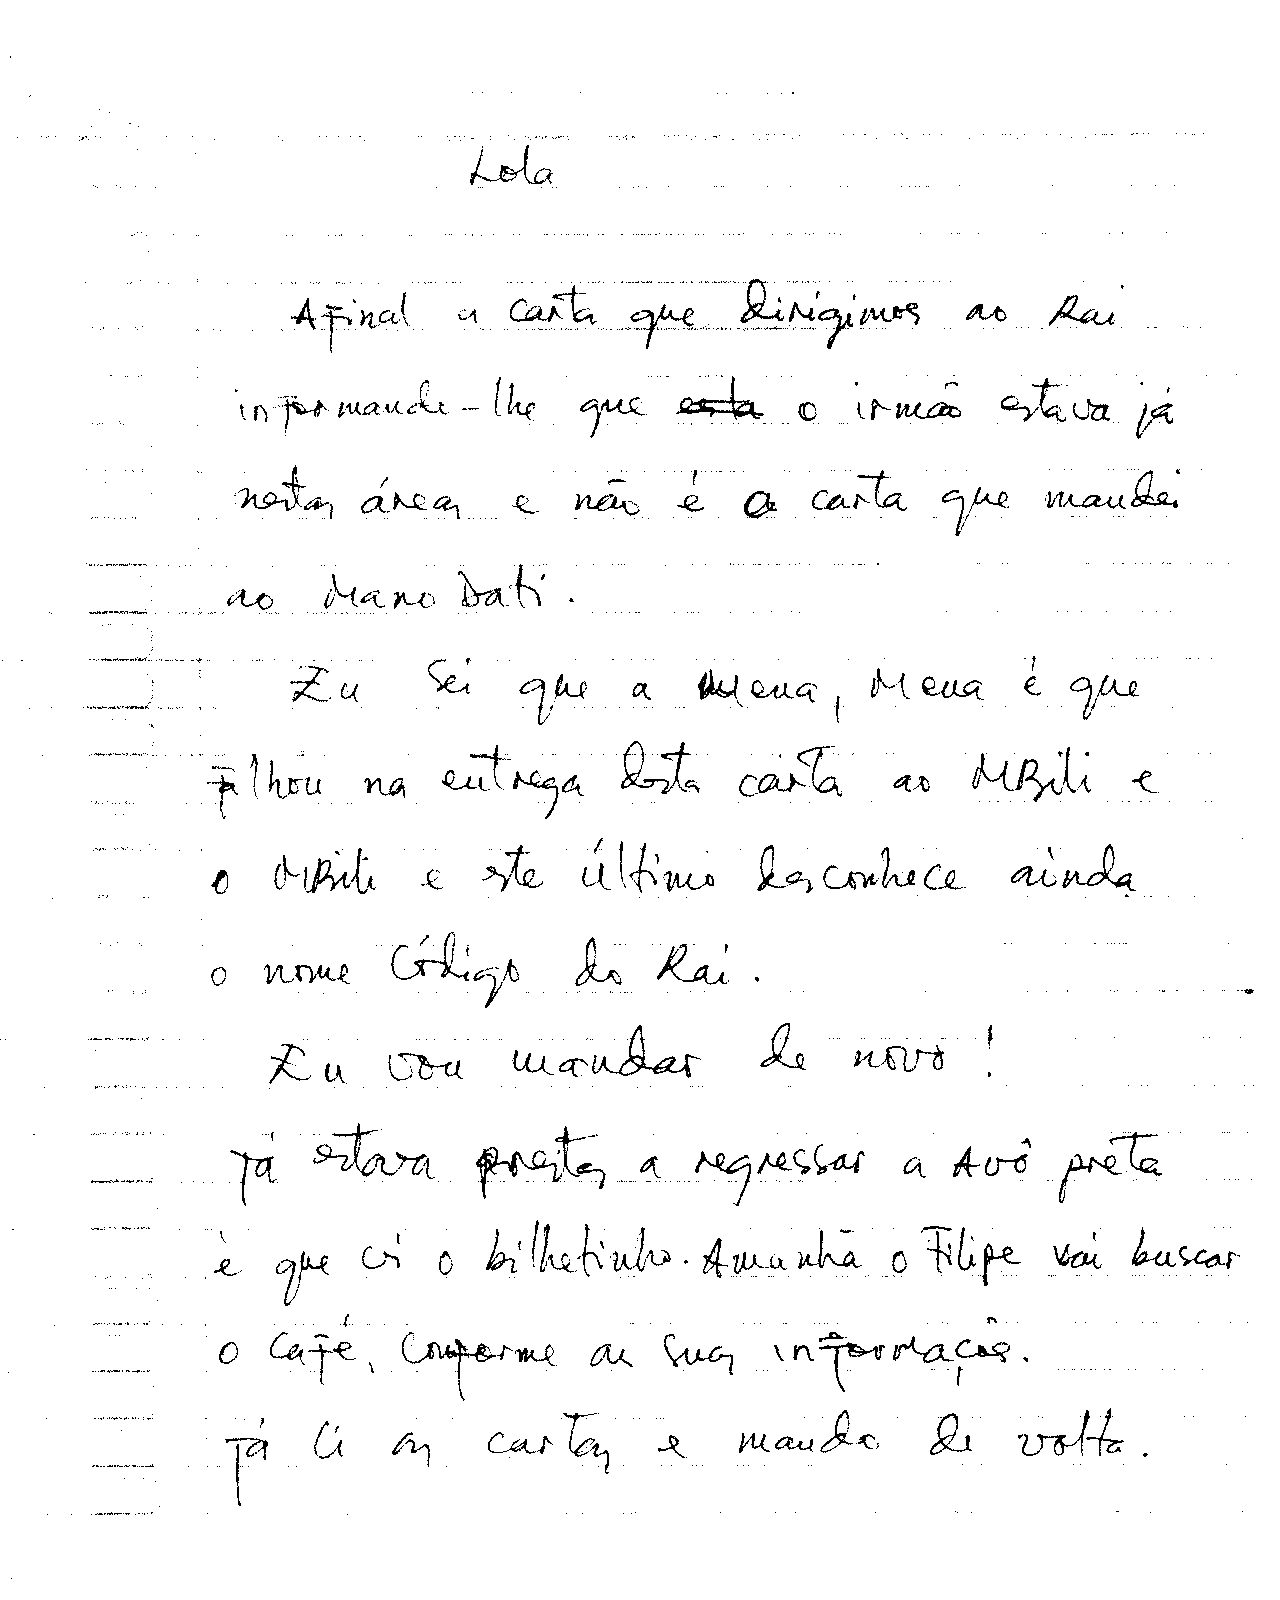 Lola
Afinal a carta que dirigimos ao Rai
informando-lhe que esta o irmão estava já
nestas áreas e não é a carta que mandei
ao Mano Dati.
Eu sei que a Mena, Mena é que
falhou na entrega desta carta ao MBili e
o MBili e este último desconhece ainda
o nome Código do Rai.
Eu vou mandar de novo!
Já estava prestes a regressar a Avô preta
é que vi o bilhetinho. Amanhã o Filipe vai buscar
o café, conforme as suas informações.
Já li as cartas e mando de volta.